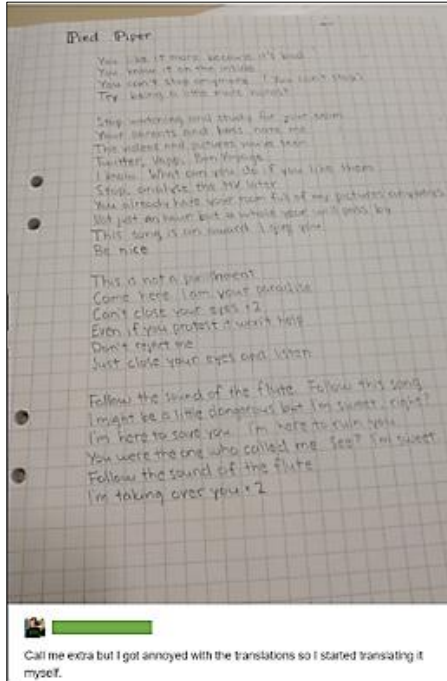 Pied Piper
You like it more because it's bad
You know it on the inside
You can't stop anymore (You can't stop)
Try being a little more honest
Stop watching and study for your exam
Your parents and boss hate me
The videos and pictures you've seen
Twitter, Vapp, Bon Voyage
I know. What can you do if you like them
Stop, analyse the MV later
You already have your room full of my pictures anyways
Not just an hour but a whole year will pass by
This song is an award I give you
Be nice
This is not a punishment
Come here I am your paradise
Can't close your eyes × 2
Even if you protest it won't help
Don't reject me
Just close your eyes and listen
Follow the sound of the flute. Follow this song
I might be a little dangerous but I'm sweet, right?
I'm here to save you. I'm here to ruin you
You were the one who called me. See? I'm sweet
Follow the sound of the flute
I'm taking over you × 2
Call me extra but I got annoyed with the translations so I started translating it
myself.